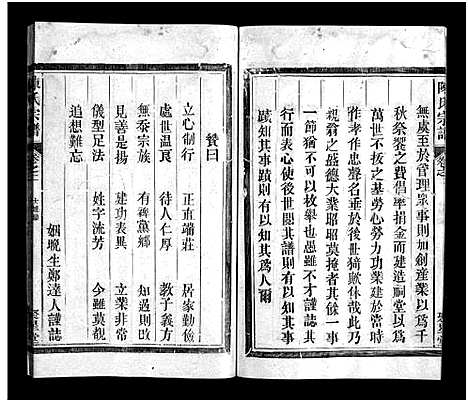 陳氏宗譜
無虞至於管理眾事則加創產業以為千
秋祭饗之費倡率捐金而建造祠堂以為
萬世不拔之基勞心勞力功業建於當時
作孝作忠聲名垂於後世猗歟休哉此乃
親翁之盛德大業昭昭莫掩者其餘一事
一節猶不可以枚舉也愚雖不才謹誌其
行而表心使後世閱其譜則有以知其事
蹟知其事蹟則有以知其為人爾
贊曰
立心制行 正直端莊 居家勤儉
處世溫良 待人仁厚 教子義方
無忝宗族 有裨黨鄉 知過則改
見善是揚 建功表異 立業非常
儀型足法 姓字流芳 今雖莫覩
追想難忘
姻晚生鄭達人謹誌
陳氏宗譜